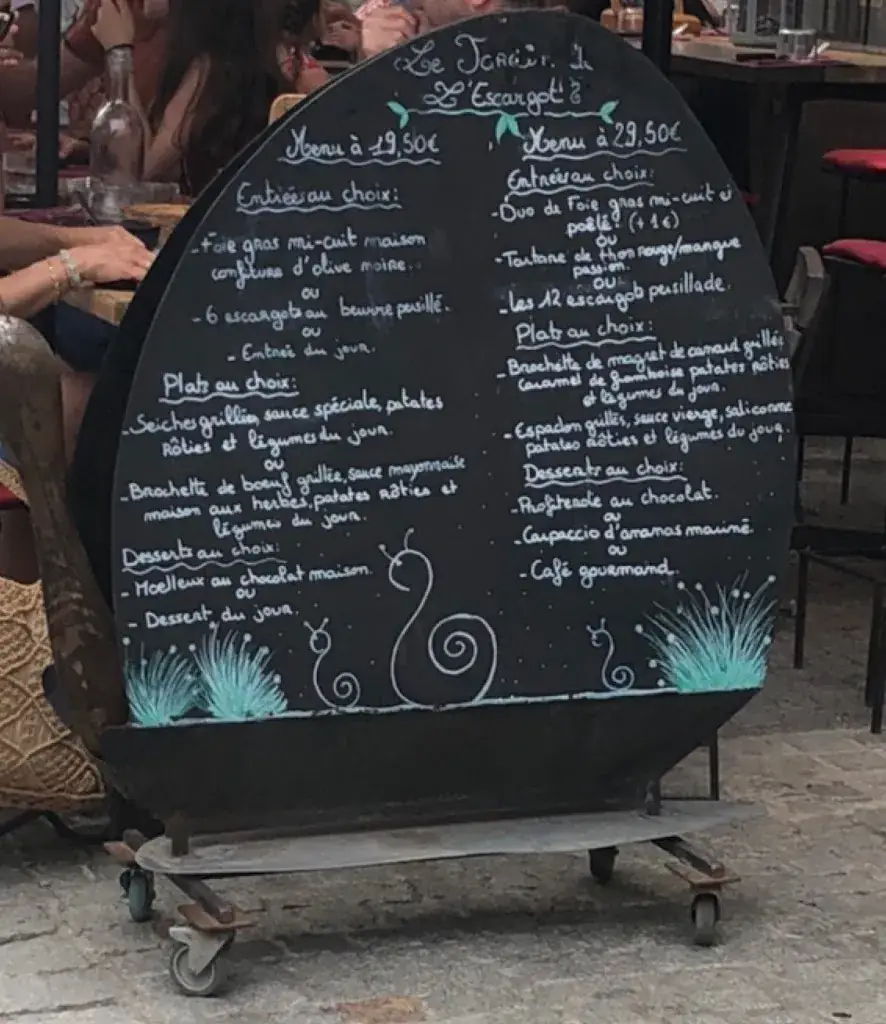 Le Jardin de
L'Escargot
Menu à 19,50€
Entrées au choix:
- Foie gras mi-cuit maison
confiture d'olive noire.
ou
- 6 escargots au beurre persillé.
ou
- Entrée du jour.
Plats au choix:
- Seiches grillées, sauce spéciale, patates
Rôties et légumes du jour.
ou
- Brochette de boeuf grillée, sauce mayonnaise
maison aux herbes, patates rôties et
légumes du jour.
Desserts au choix:
- Moelleux au chocolat maison.
ou
- Dessert du jour.
Menu à 29,50€
Entrées au choix:
- Duo de Foie gras mi-cuit et
poêlé! (+1€)
ou
- Tartare de thon rouge/mangue
passion.
ou
- Les 12 escargots persillade.
Plats au choix:
- Brochette de magret de canard grillée
caramel de framboise patates rôties
et légumes du jour.
- Espadon grillés, sauce vierge, salicorne
patates rôties et légumes du jour.
Desserts au choix:
- Profiterole au chocolat.
ou
- Carpaccio d'ananas mariné
ou
- Café gourmand.